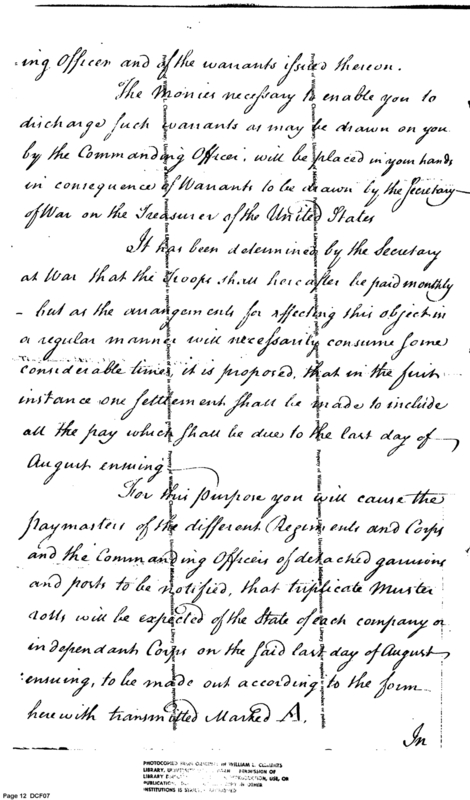 ing Officer and of the warrants issued thereon.
The Monies necessary to enable you to
discharge such warrants as may be drawn on you
by the Commanding Officer, will be placed in your hands
in consequence of Warrants to be drawn by the Secretary
of War on the Treasurer of the United States
It has been determined by the Secretary
at War that the Troops shall hereafter be paid monthly
- but as the arrangements for effecting this object in
a regular manner will necessarily consume some
considerable time, it is proposed, that in the first
instance one settlement shall be made to include
all the pay which shall be due to the last day of
August ensuing
For this purpose you will cause the
paymasters of the different Regiments and Corps
and the Commanding Officers of detached garrisons
and posts to be notified, that triplicate Muster
rolls will be expected of the State of each company or
independants Corps on the said last day of August
ensuing, to be made out according to the form
herewith transmitted Marked A.
In
PHOTOCOPIED FROM ORIGINAL IN WILLIAM L. CLEMENTS
LIBRARY, PERMISSION OF
LIBRARY REPRODUCTION, USE, OR
PUBLICATION, IN OTHER
INSTITUTIONS IS
Page 12 DCF07